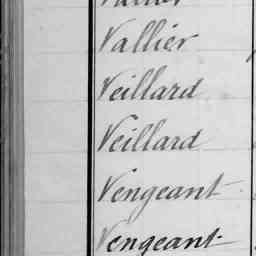 Vallier
Veillard
Veillard
Vengeant
Vengeant